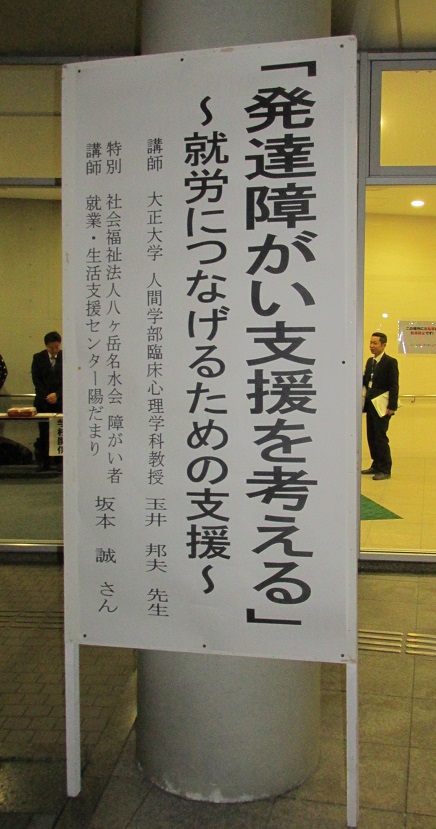 「発達障がい支援を考える」
～就労につなげるための支援～
講師 大正大学 人間学部臨床心理学科教授 玉井 邦夫 先生
特別 社会福祉法人八ヶ岳名水会 障がい者
講師 就業・生活支援センター陽だまり 坂本 誠 さん